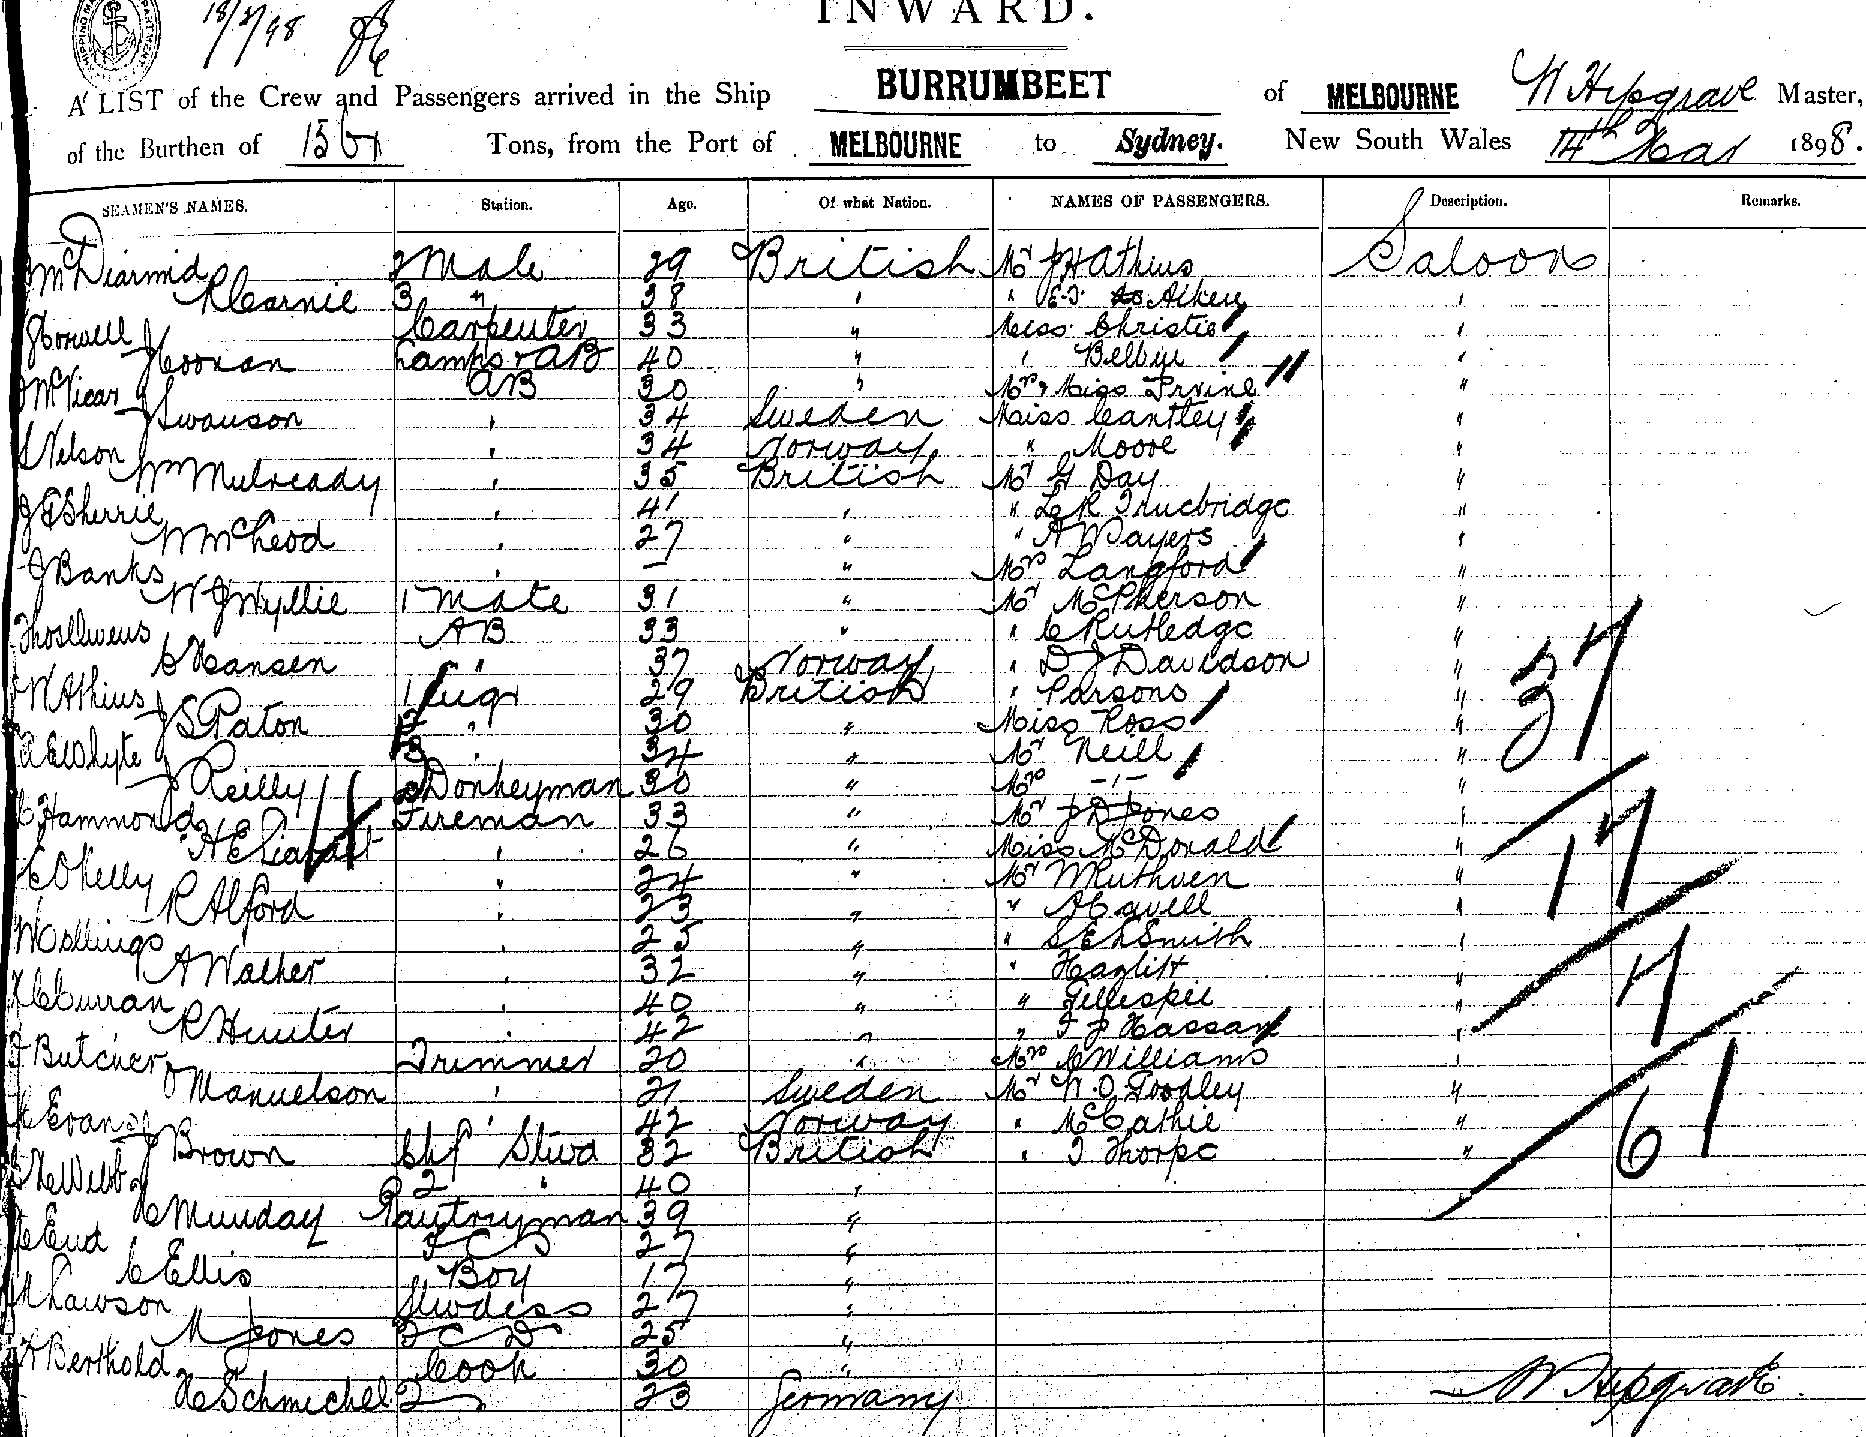 18/3/98
INWARD.
A LIST of the Crew and Passengers arrived in the Ship BURRUMBEET of MELBOURNE W Hipgrave Master,
of the Burthen of Tons, from the Port of MELBOURNE to Sydney. New South Wales 14th Mar 1898.
SEAMEN'S NAMES. Station. Age. Of what Nation. NAMES OF PASSENGERS. Description. Remarks.
J McDiarmid 2 Mate 29 British Mr J H Atkins Saloon
R Carnie 3 " 38 " " E.J. Alkey "
J Horwell Carpenter 33 " Miss Christie "
J Hoonan Lamps & AB 40 " " "
J McVicar AB 30 " Mrs & Miss Irvine "
J Swanson " 34 Sweden Miss Cantley "
S Nelson " 34 Norway " Moore "
Wm Mulready " 35 British Mr G Day "
J E Sherrie " 41 " " L R Truebridge "
W McLeod " 27 " " A W Sayers "
J Banks " — " Mrs Langford "
W J Wyllie 1 Mate 31 " Mr McPherson "
Thos Owens AB 33 " " C Rutledge "
C Hansen " 37 Norway " D J Davidson "
W Atkins 1 Engr 29 British " Parsons " 37
J S Paton 2 " 30 " Miss Ross "
A E Whyte 3 " 34 " Mr Neill "
J Reilly Donkeyman 30 " Mrs -"- "
C Hammond Fireman 33 " Mr J D Jones "
H E " 26 " Miss McDonald "
C O'Kelly " 24 " Mr W Ruthven " 17
R Alford " 23 " " A Cavell "
W Collings " 25 " " S E A Smith "
A Walker " 32 " " Hazlitt "
J Curran " 40 " " Gillespie " 7
R Hunter " 42 " " F J Hassan "
J Butcher Trimmer 20 " Mrs C Williams "
J Manuelson " 21 Sweden Mr W.O. "
M Evans " 42 Norway " McCathie "
J Brown Chf Stwd 32 British " J Thorpe " 61
Webb 2 " 40 "
C Munday Pantryman 39 "
27 "
C Ellis Boy 17 "
M Lawson Stwdess 27 "
M Jones 25 "
Berthold Cook 30 "
H Schmichel 2 23 Germany
W Hipgrave